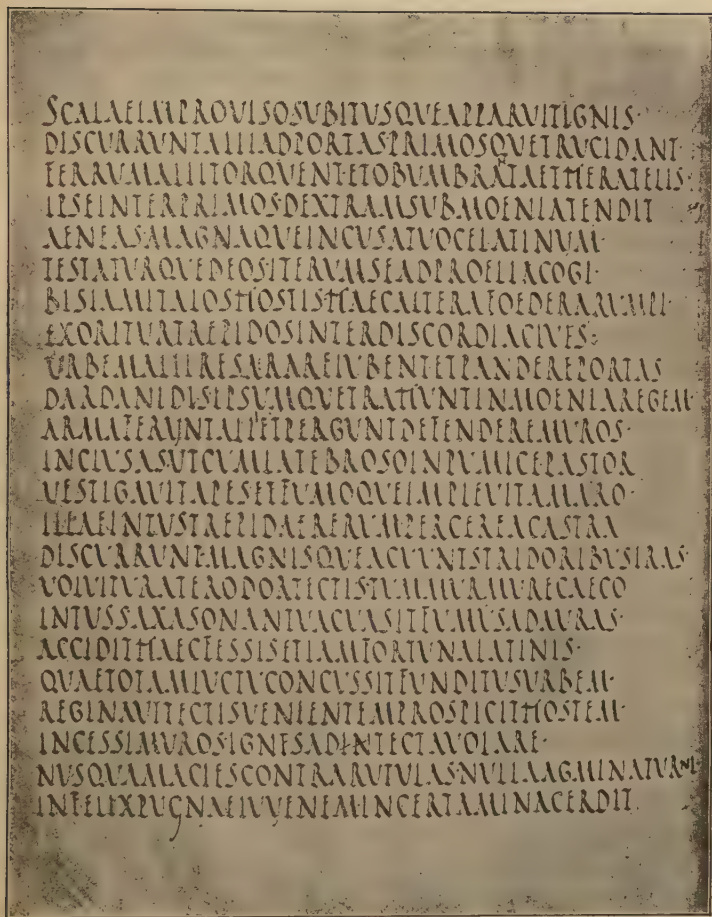 SCALAEIMPROVISOSVBITVSQVEAPPARVITIGNIS·
DISCVRRVNTALIIADPORTASPRIMOSQVETRVCIDANT·
FERRVMALIITORQVENT·ETOBVMBRATAETHERATELIS·
IPSEINTERPRIMOS·DEXTRAMSVBMOENIATENDIT
AENEAS·MAGNAQVEINCVSATVOCELATINVM·
TESTATVRQVEDEOS·ITERVMSEADPROELIACOGI·
BISIAMITALOSHOSTISHAECALTERAFOEDERARVMPI·
EXORITVRTREPIDOSINTERDISCORDIACIVES·
VRBEMALIIRESARAREIVBENTETPANDEREPORTAS
DARDANIDISIPSVMQVETRAHVNTINMOENIAREGEM
ARMAFERVNTALIIETPERGVNTDEFENDEREMVROS·
INCLVSASVTCVMLATEBROSOINPVMICEPASTOR
VESTIGAVITAPESETFVMOQVEIMPLEVITAMARO·
ILLAEINTVSTREPIDAERERVMPERCEREACASTRA
DISCVRRVNT·MAGNISQVEACVVNTSTRIDORIBVSIRAS·
VOLVITVRATERODORATECTISTVMMVRMVRECAECO
INTVSSAXASONANTVACVASITFVMVSADAVRAS·
ACCIDITHAECFESSISETIAMFORTVNALATINIS·
QVAETOTAMLVCTVCONCVSSITFVNDITVSVRBEM·
REGINAVITECTISVENIENTEMPROSPICITHOSTEM·
INCESSIMVROSIGNESADINTECTAVOLARE·
NVSQVAMACIESCONTRARVTVLAS·NVLLAAGMINATVRNI
INFELIXPVGNAEIVVENEMINCERTAMINACERDIT·